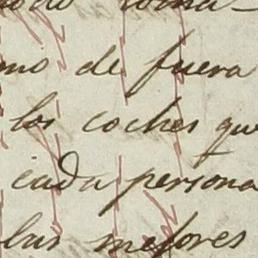 no de fuera
los coches que
cada persona
las mejores